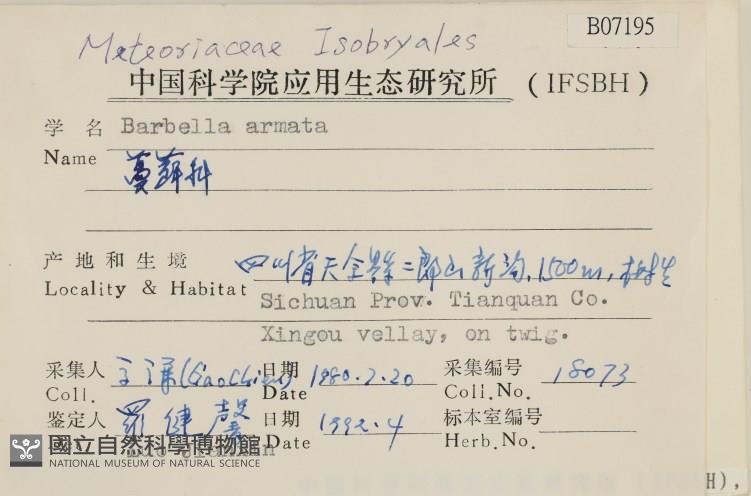 B07195
Meteoriaceae Isobryales
中国科学院应用生态研究所 (IFSBH)
学名 Barbella armata
Name 蔓藓科
产地和生境 四川省天全縣二郎山新沟,1500m,树生
Locality & Habitat Sichuan Prov. Tianquan Co.
Xingou vellay, on twig.
采集人 (Gao Chien) 日期 1980.7.20 采集编号 18073
Coll. Date Coll.No.
鉴定人 羅健馨 日期 1992.4 标本室编号
Date Herb.No.
國立自然科學博物館
NATIONAL MUSEUM OF NATURAL SCIENCE
H),